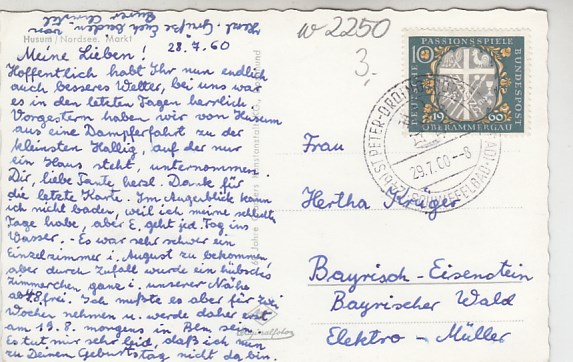 Herzl. Grüße Euch beiden von
Eurer Christel
Husum / Nordsee, Markt
28.7.60
Meine Lieben!
Hoffentlich habt Ihr nun endlich
auch besseres Wetter, bei uns war
es in den letzten Tagen herrlich.
Vorgestern haben wir von Husum
aus eine Dampferfahrt zu der
kleinsten Hallig, auf der nur
ein Haus steht, unternommen.
Dir, liebe Tante, herzl. Dank für
die letzte Karte. Im Augenblick kann
ich nicht baden, weil ich meine schlecht.
Tage habe, aber E. geht jed. Tag ins
Wasser. - Es war sehr schwer ein
Einzelzimmer i. August zu bekommen,
aber durch Zufall wurde ein hübsches
Zimmerchen ganz i. unserer Nähe
ab 4.8. frei. Ich mußte es aber für zwei
Wochen nehmen u. werde daher erst
am 19.8. morgens in Bln sein.
Es tut mir sehr leid, daß ich nun
zu Deinem Geburtstag nicht da bin.
w 2250
3,-
DEUTSCHE
PASSIONSSPIELE
BUNDESPOST
10
1960
OBERAMMERGAU
ST PETER-ORDING
29.7.60--8
Frau
Hertha Krüger
Bayrisch-Eisenstein
Bayrischer Wald
Elektro-Müller